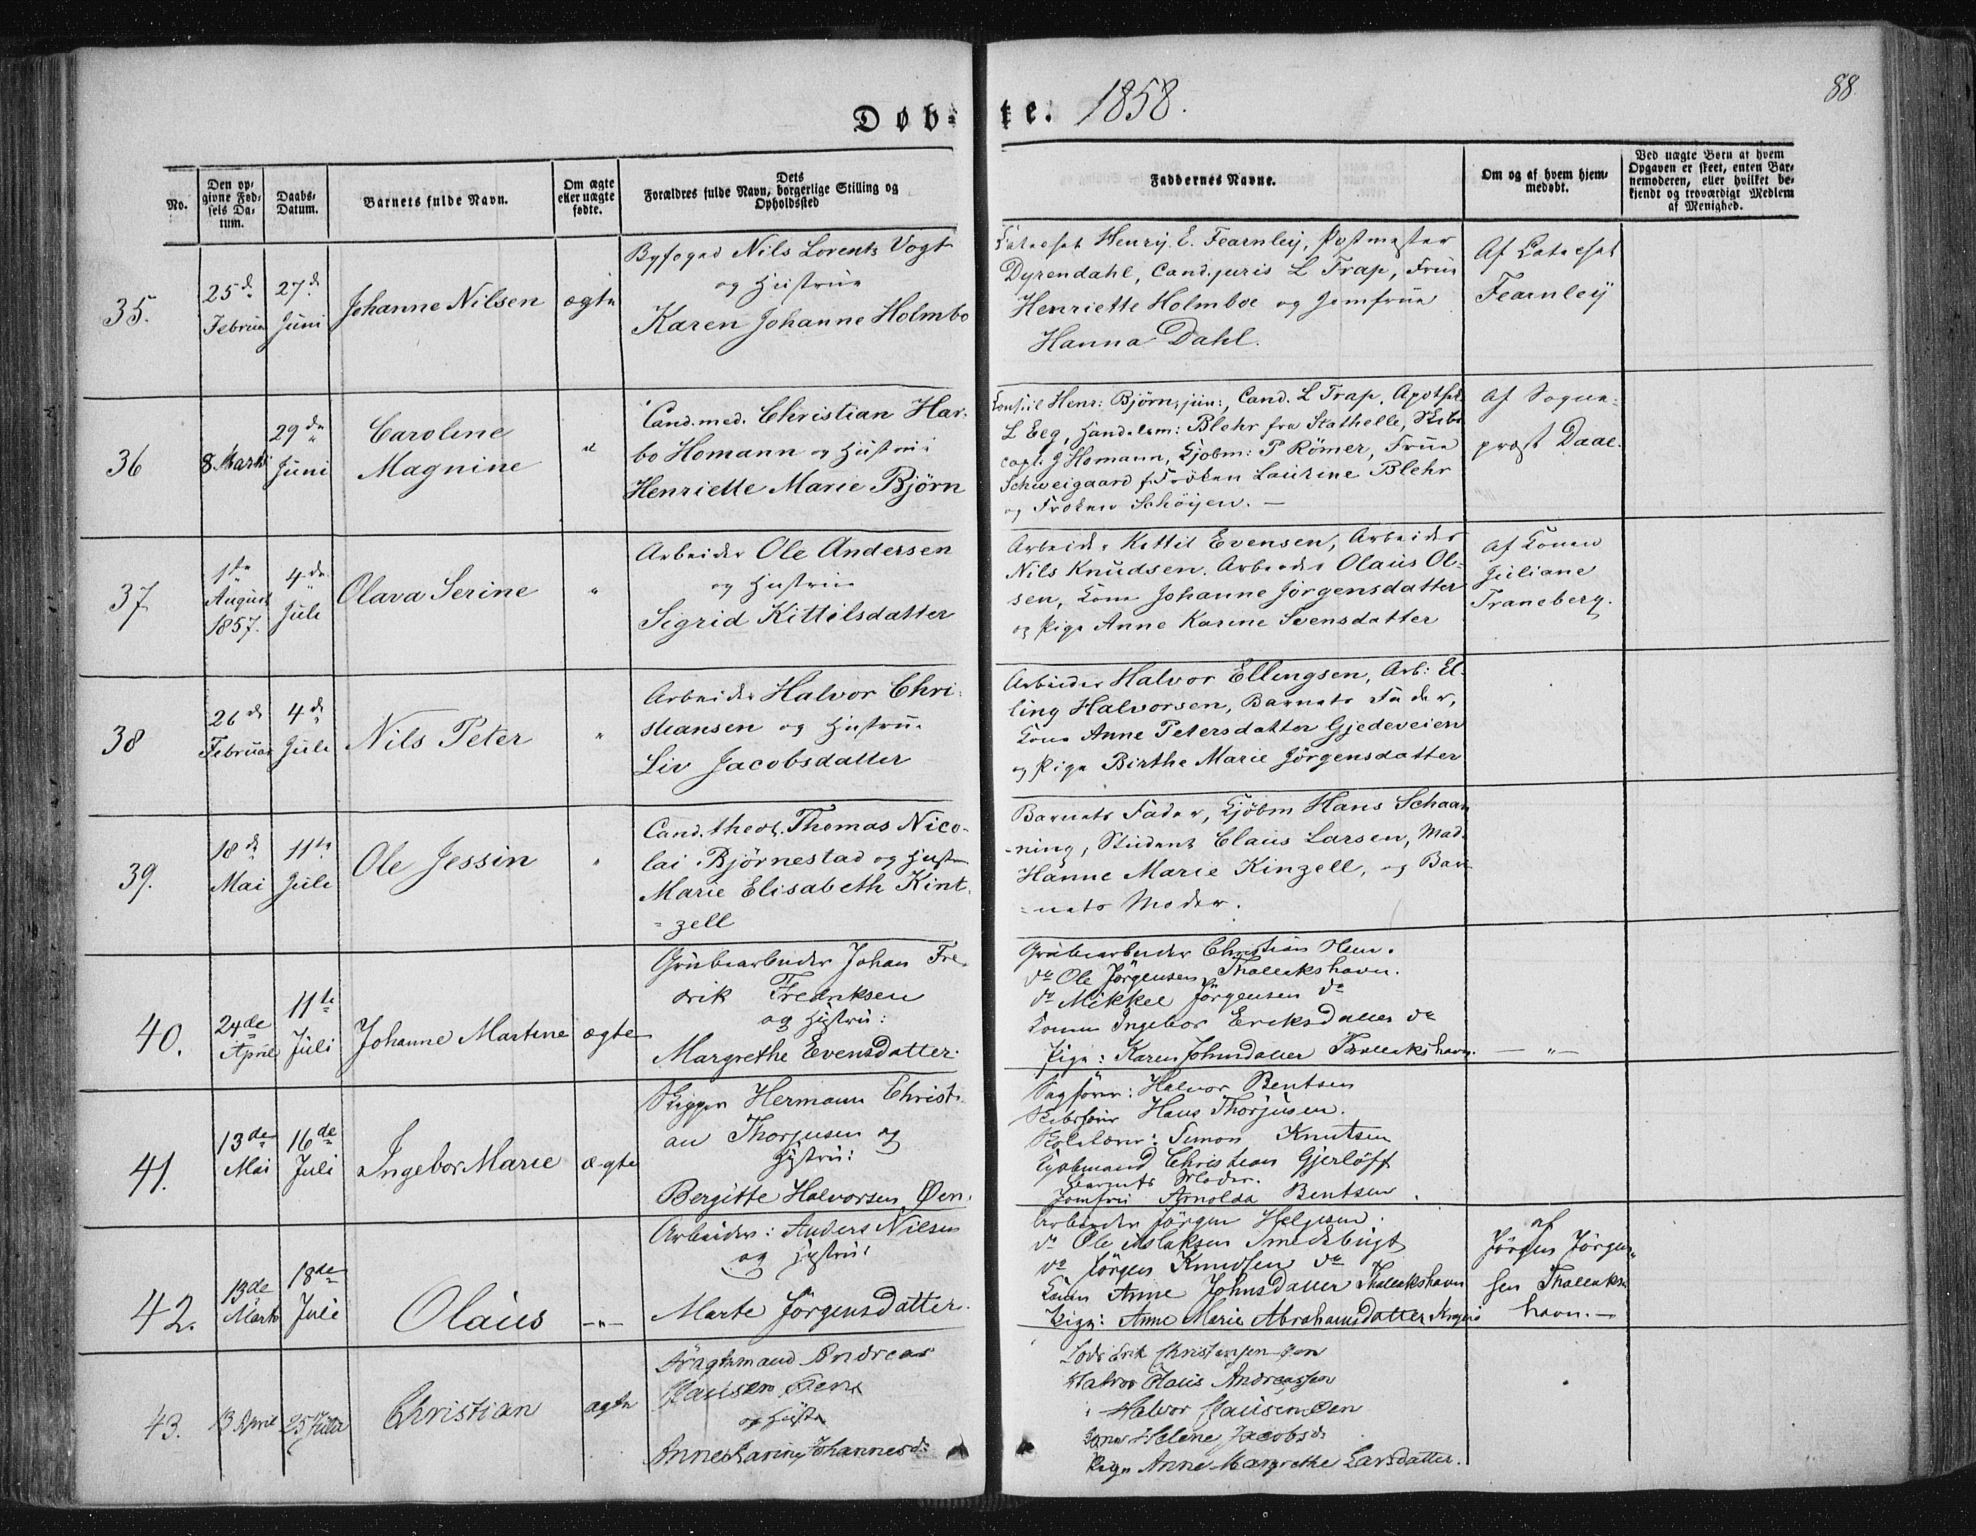 Døb=te. 1858.
88
No.
Den op-
givne Fød-
sels Da-
tum.
Daabs-
Datum.
Barnets fulde Navn.
Om ægte
eller uægte
fødte.
Dets
Forældres fulde Navn, borgerlige Stilling og
Opholdssted
Faddernes Navne.
Om og af hvem hjem-
medøbt.
Ved uægte Børn af hvem
Opgaven er skeet, enten Bar-
nemoderen, eller hvilket be-
kjendt og troværdigt Medlem
af Menighed.
35.
25de
Februar
27de
Juni
Johanne Nilsen
ægte
Byfoged Nils Lorentz Vogt
og Hustrue
Karen Johanne Holmbo
Catechet Henry E. Fearnley, Postmester
Dyrendahl, Cand. juris L Trap, Frue
Henriette Holmboe og Jomfrue
Hanna Dahl.
Af Catechet
Fearnley
36
8. Marts
29de
Juni
Caroline
Magnine
"
Cand. med. Christian Har-
bo Homann og Hustrui
Henriette Marie Bjørn
Consul Henr: Bjørn jun:, Cand. L Trap, Apothek
L Eeg, Handelsm: Blehr fra Stathelle, Skibs
capt. J Homann, Kjøbm: P Römer, Frue
Schweigaard f. Fröken Laurine Blehr
og Frøken Schöijen. —
Af Sogne-
præst Daae.
37
1ste
August
1857.
4de
Juli
Olava Serine
"
Arbeider Ole Andersen
og Hustrue
Sigrid Kittilsdatter
Arbeider Kittil Evensen, Arbeider
Nils Knudsen. Arbeider Olaus Ol-
sen, Kone Johanne Jörgensdatter
og Pige Anne Karine Svensdatter
Af Konen
Juliane
Traneberg.
38
26de
Februar
4de
Juli
Nils Peter
"
Arbeider Halvor Chri-
stiansen og Hustrue
Liv Jacobsdatter
Arbeider Halvor Ellingsen, Arb: El-
ling Halvorsen, Barnets Fader,
Kone Anne Petersdatter Gjedeveien
og Pige Birthe Marie Jörgensdatter
39.
18de
Mai
11te
Juli
Ole Jessin
"
Cand. theol. Thomas Nico-
lai Bjørnestad og Hustru
Marie Elisabeth Kint-
= zell
Barnets Fader, Kjøbm Hans Schaan
-ning, Student Claus Larsen, Mad-
Hanne Marie Kinzell, og Bar
= nets Moder.
40.
24de
April
11te
Juli
Johanne Martine
ægte
Grubearbeider Johan Fre-
drik Fredriksen
og Hustru:
Margrethe Evensdatter.
Grubearbeider Christian
do Ole Jörgensen Thalleakshavn.
do Mikkel Jörgensen do
Konen Ingebor Eriksdatter do
Pige: Karen Johnsdatter Thalleakshavn.
— " —
41.
13de
Mai
16de
Juli
Ingebor Marie
ægte
Skipper Hermann Christi-
an Thorjusen og
Hustru:
Bergitte Halvorsen Øen.
Sagfører: Halvor Bentsen
Skibsfører Hans Thorjusen.
Simon Knutsen
Kjøbmand Christian Gjerløff
Barnets Moder.
Jomfru Arnolda Bentsen.
42.
13de
Marts
18de
Juli
Olaus
—"—
Arbeider: Anders Nilsen
og Hustru:
Marte Jörgensdatter.
Arbeider Jörgen Helgesen.
do Ole Aslaksen Smedsbugt
do Jörgen Knudsen do
Konen Anne Johnsdatter Thaleakshavn
Pige: Anne Marie Abrahamsdatter Kragerö
af
Jörgen Jörgen-
sen Thalleaks
havn. —
43.
13 April
25 Juli
Christian
ægte
Fragtmand Andreas
Clausen Øen
og Hustr
Anne Karine Johannesd:
Lods Erik Christensen Øen
Halvor Claus Andreassen
Halvor Clausen Øen
Kone Helene Jacobsd
Pige Anne Margrethe Larsdatter.